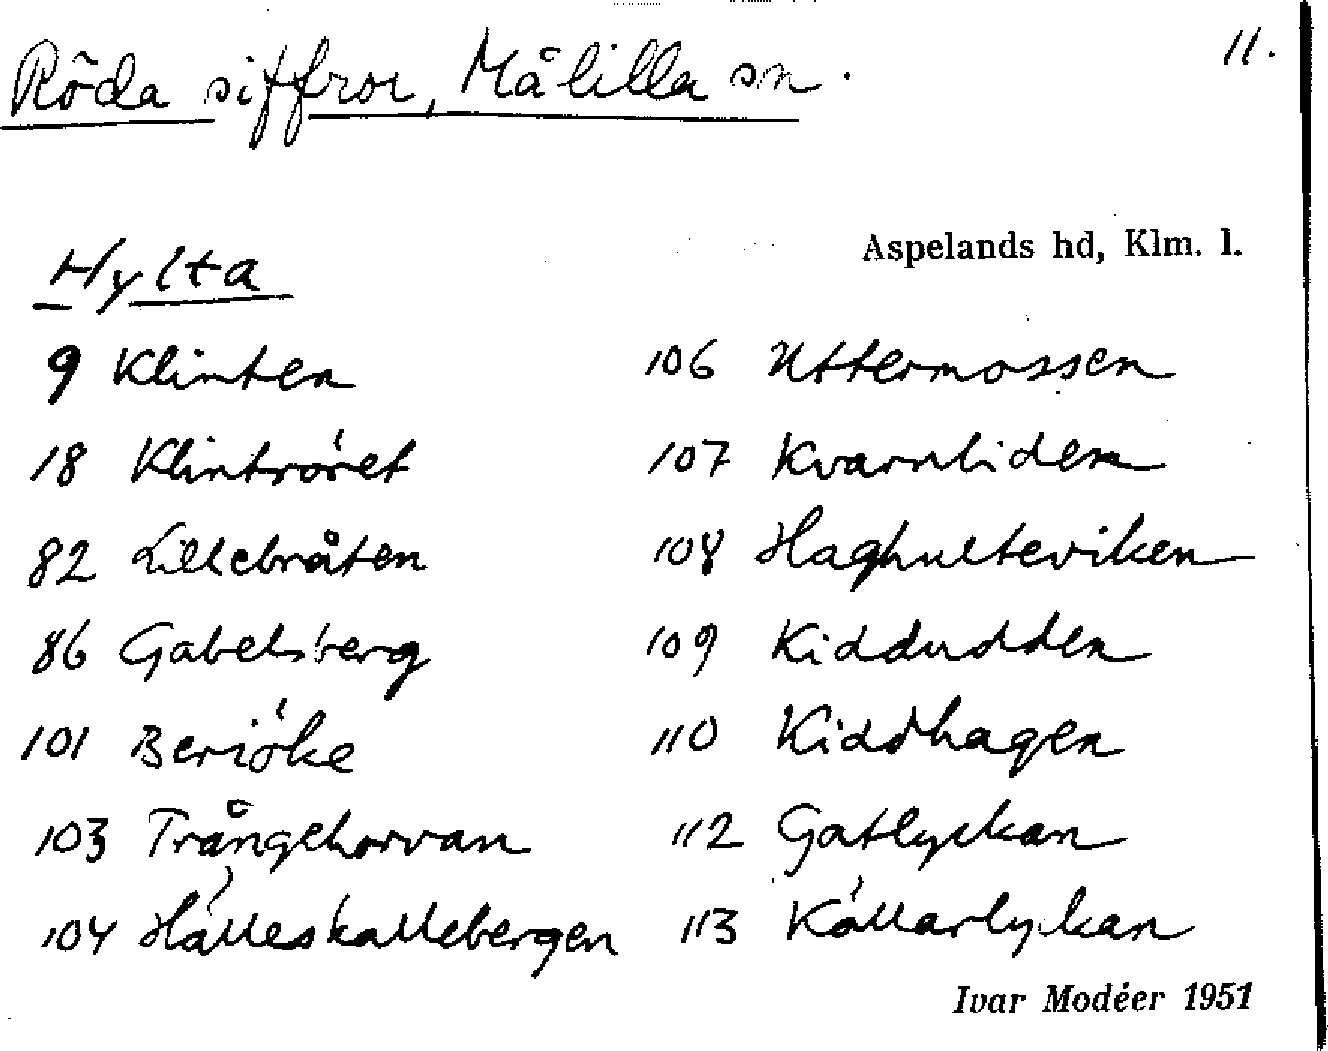 Röda siffror, Målilla sn.
11.
Aspelands hd, Klm. l.
Hylta
9 Klinten
18 Klintröret
82 Lillebråten
86 Gabelsberg
101 Beriöke
103 Trångehorvan
104 Hälleskallebergen
106 Uttermossen
107 Kvarnliden
108 Haghulteviken
109 Kiddudden
110 Kiddhagen
112 Gatlyckan
113 Källarlyckan
Ivar Modéer 1951